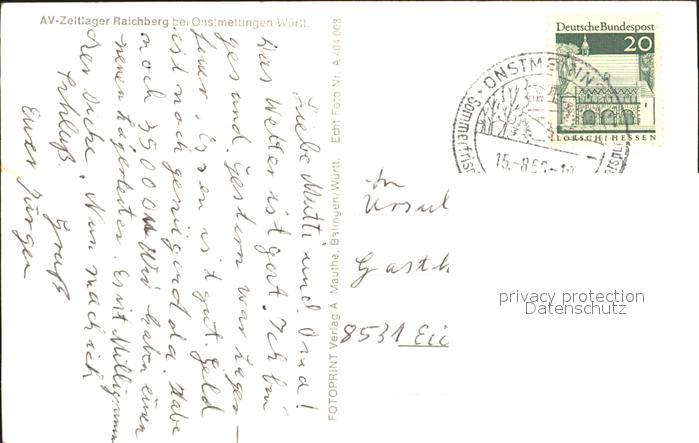 AV-Zeltlager Raichberg bei Onstmettingen, Württ.
Liebe Mutti und Oma!
Das Wetter ist gut. Ich bin
gesund. Gestern war Lager-
feuer. Essen ist gut. Geld
ist noch genügend da. Habe
noch 3500 Wir haben einen
neuen Lagerleiter. Es ist Milligramm
der Dicke. Nun mach ich
Schluß.
Gruß
Euer Jürgen
FOTOPRINT Verlag A. Mauthe, Balingen/Württ. Echt Foto Nr. A -04 003
Deutsche Bundespost
20
LORSCH/HESSEN
ONSTMETTING
Sommerfris
15.-8.6
An
Ursul
Gasth
8531 Ei
privacy protection
Datenschutz